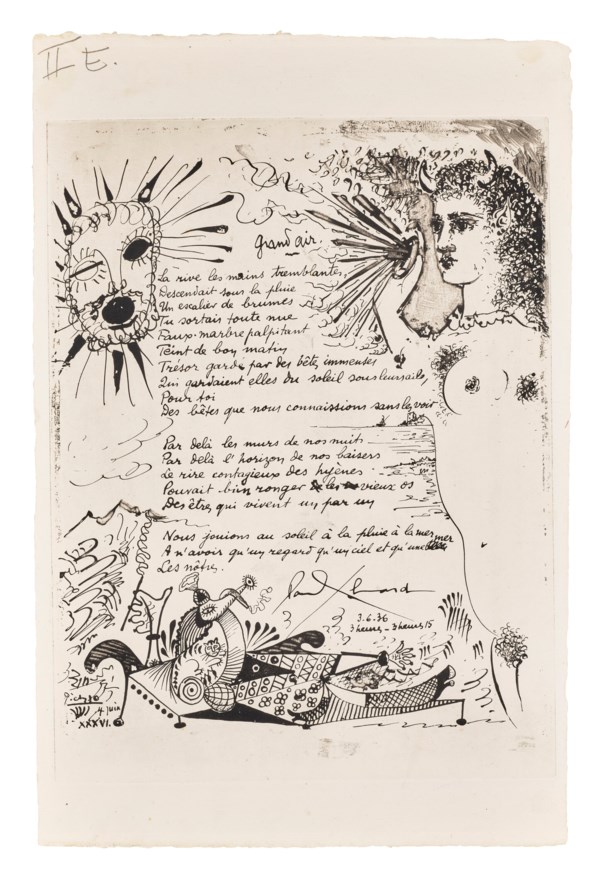 II E.
Grand air.
La rive les mains tremblantes,
Descendait sous la pluie
Un escalier de brumes
Tu sortais toute nue
Faux marbre palpitant
Teint de bon matin
Trésor gardé par des bêtes immenses
Qui gardaient elles du soleil sous leurs ailes,
Pour toi
Des bêtes que nous connaissions sans les voir
Par delà les murs de nos nuits
Par delà l'horizon de nos baisers
Le rire contagieux des hyènes
Pouvait bien ronger les vieux os
Des êtres qui vivent un par un
Nous jouions au soleil à la pluie à la mer
A n'avoir qu'un regard qu'un ciel et qu'une mer
Les nôtres.
Paul Eluard
3.6.36
3 heures - 3 heures 15
Picasso
4 juin
XXXVI.